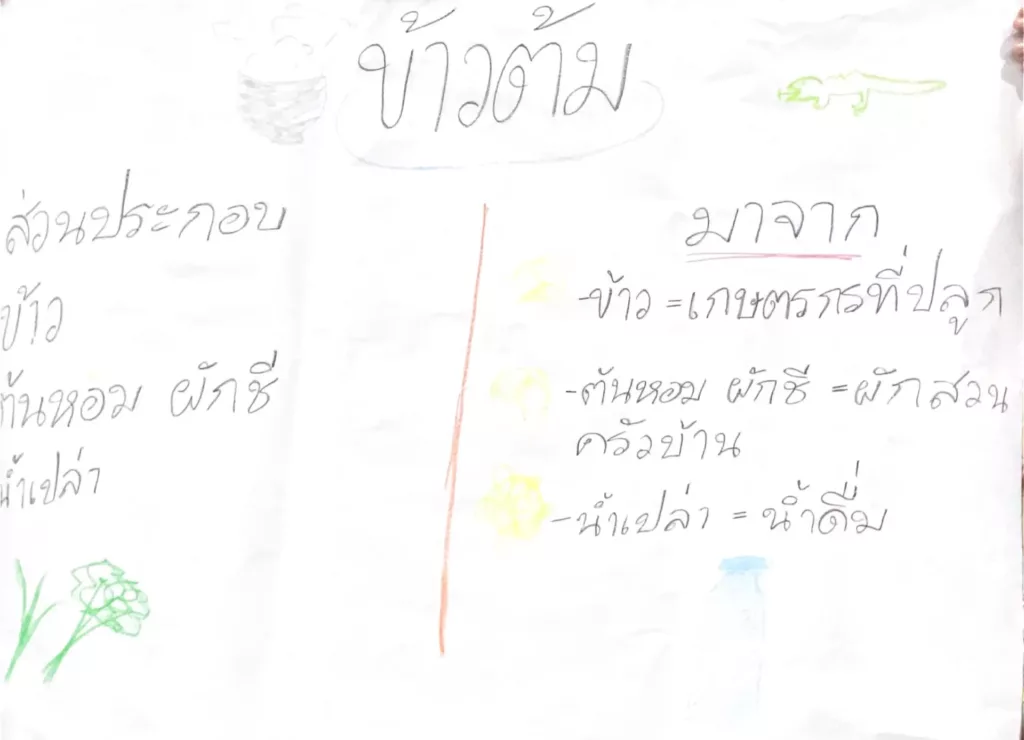 ข้าวต้ม
ส่วนประกอบ
ข้าว
ต้นหอม ผักชี
น้ำเปล่า
มาจาก
-ข้าว =เกษตรกรที่ปลูก
-ต้นหอม ผักชี =ผักสวน
ครัวบ้าน
-น้ำเปล่า = น้ำดื่ม